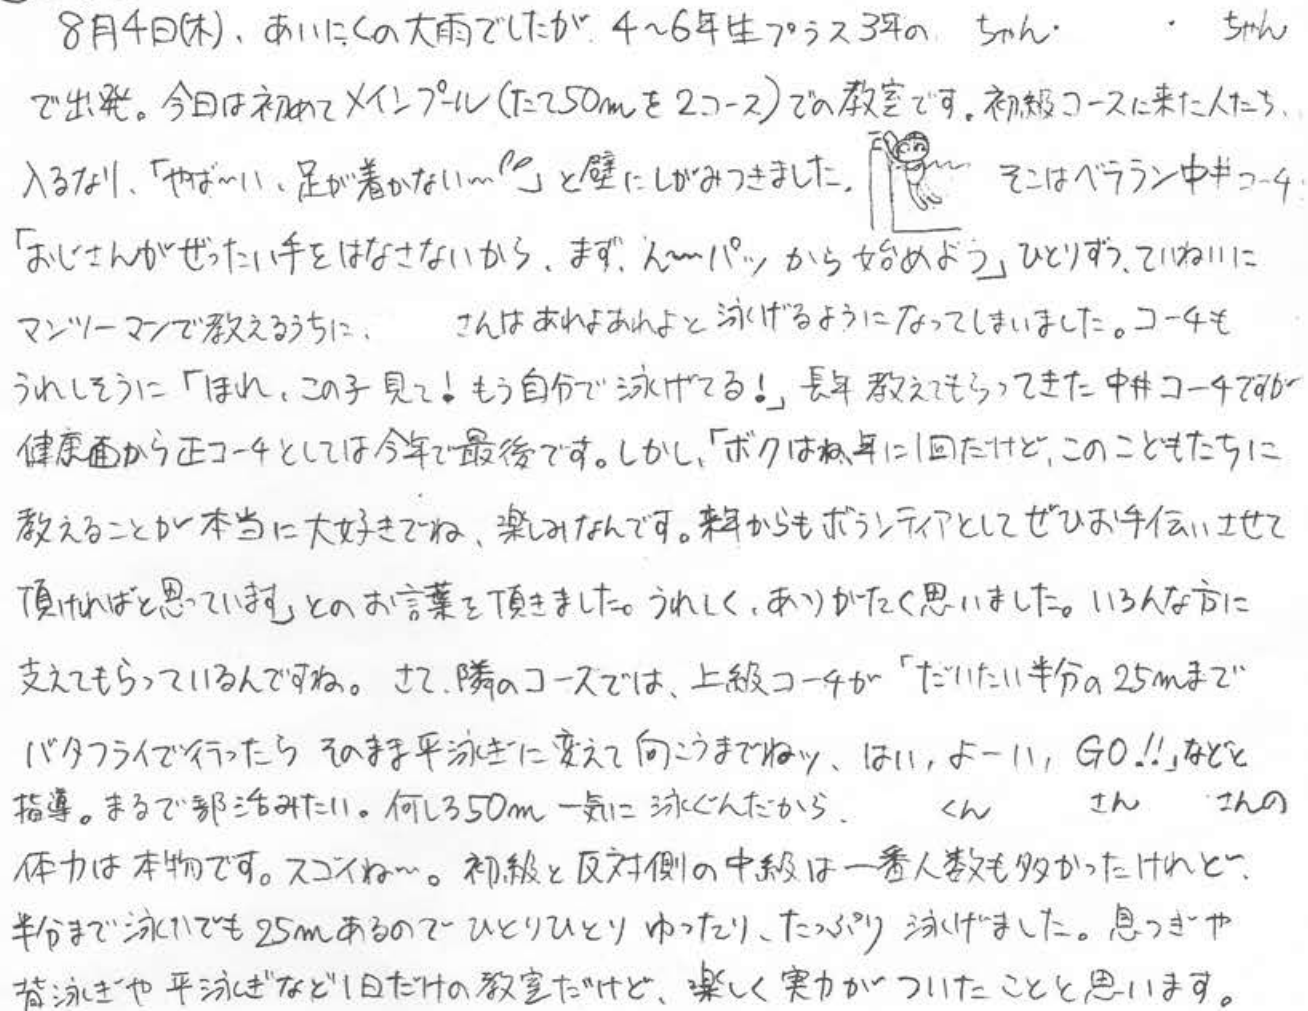 8月4日(木)、あいにくの大雨でしたが、4〜6年生プラス3年の　ちゃん・　・　ちゃん
で出発。今日は初めてメインプール(たて50mを2コース)での教室です。初級コースに来た人たち、
入るなり、「やば〜い、足が着かない〜」と壁にしがみつきました。　そこはベテラン中井コーチ
「おじさんがぜったい手をはなさないから、まず、ん〜パッから始めよう」ひとりずつ、ていねいに
マンツーマンで教えるうちに、　さんはあれよあれよと泳げるようになってしまいました。コーチも
うれしそうに「ほれ、この子見て!もう自分で泳げてる!」長年教えてもらってきた中井コーチですが
健康面から正コーチとしては今年で最後です。しかし、「ボクはね、年に1回だけど、このこどもたちに
教えることが本当に大好きでね、楽しみなんです。来年からもボランティアとしてぜひお手伝いさせて
頂ければと思っています」とのお言葉を頂きました。うれしく、ありがたく思いました。いろんな方に
支えてもらっているんですね。さて、隣のコースでは、上級コーチが「だいたい半分の25mまで
バタフライで行ったらそのまま平泳ぎに変えて向こうまでねッ、はい、よーい、GO!!」などと
指導。まるで部活みたい。何しろ50m一気に泳ぐんだから、　くん　さん　さんの
体力は本物です。スゴイね〜。初級と反対側の中級は一番人数も多かったけれど、
半分まで泳いでも25mあるのでひとりひとりゆったり、たっぷり泳げました。息つぎや
背泳ぎや平泳ぎなど1日だけの教室だけど、楽しく実力がついたことと思います。